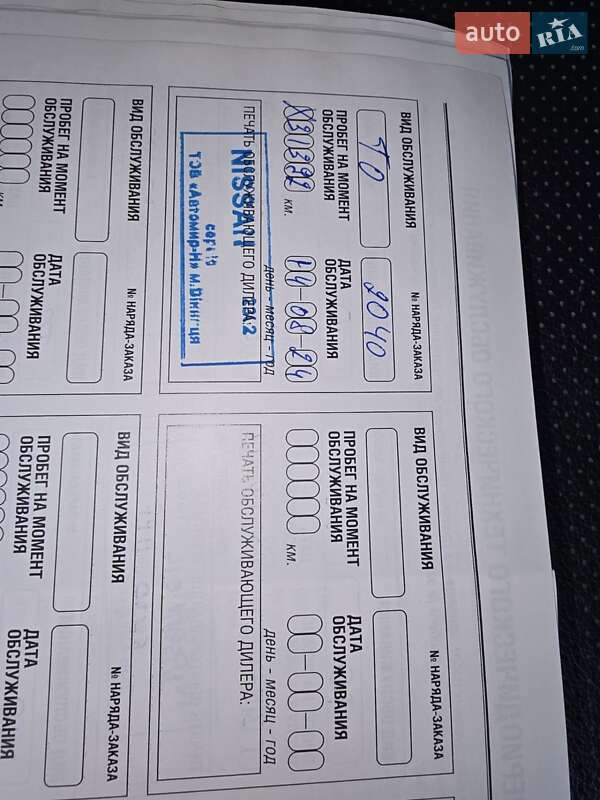 auto RIA.com
ВИД ОБСЛУЖИВАНИЯ
№ НАРЯДА-ЗАКАЗА
ТО
2040
ПРОБЕГ НА МОМЕНТ
ОБСЛУЖИВАНИЯ
ДАТА
ОБСЛУЖИВАНИЯ
км.
14-08-24
день - месяц - год
ПЕЧАТЬ ОБСЛУЖИВАЮЩЕГО ДИЛЕРА:
NISSAN
ТОВ «Автомир-Н» м.Вінниця
ВИД ОБСЛУЖИВАНИЯ
№ НАРЯДА-ЗАКАЗА
ПРОБЕГ НА МОМЕНТ
ОБСЛУЖИВАНИЯ
ДАТА
ОБСЛУЖИВАНИЯ
км.
день - месяц - год
ПЕЧАТЬ ОБСЛУЖИВАЮЩЕГО ДИЛЕРА:
ВИД ОБСЛУЖИВАНИЯ
№ НАРЯДА-ЗАКАЗА
ПРОБЕГ НА МОМЕНТ
ОБСЛУЖИВАНИЯ
ДАТА
ОБСЛУЖИВАНИЯ
км.
ВИД ОБСЛУЖИВАНИЯ
№ НАРЯДА-ЗАКАЗА
ПРОБЕГ НА МОМЕНТ
ОБСЛУЖИВАНИЯ
ДАТА
ОБСЛУЖИВАНИЯ